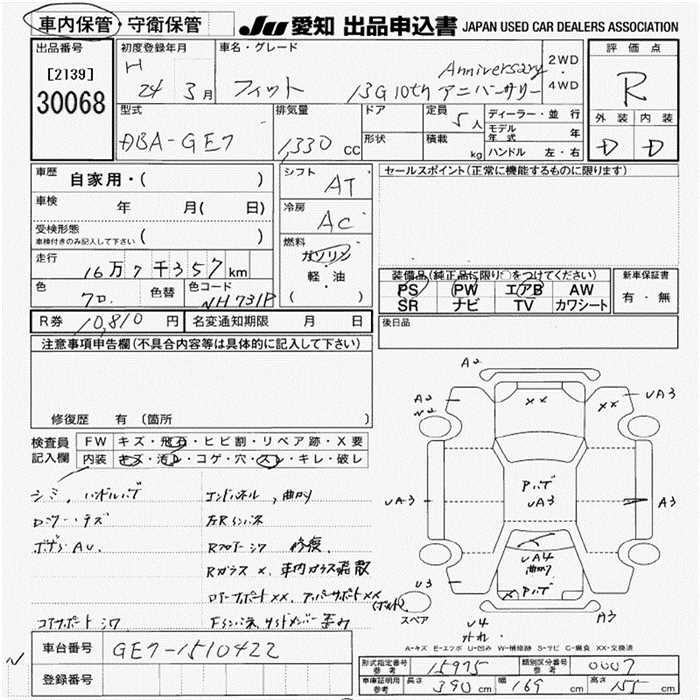 車内保管・守衛保管
JU 愛知 出品申込書 JAPAN USED CAR DEALERS ASSOCIATION
出品番号
[2139]
30068
初度登録年月
H
24 3月
車名・グレード
フィット 13G 10th Anniversary
アニバーサリー
2WD
・
4WD
評価点
R
外装 内装
D D
型式
DBA-GE7
排気量
1,330 cc
ドア
形状
定員
5人
積載
kg
ディーラー・並行
モデル年式 年
ハンドル 左・右
車歴
自家用・( )
車検
年 月( 日)
受検形態
車検付きのみ記入して下さい ( )
走行
16万7千357km
色
クロ
色替
色コード
NH731P
R券 10,810 円
名変通知期限 月 日
シフト
AT
冷房
AC
燃料
ガソリン
軽・油
( )
セールスポイント(正常に機能するものに限ります)
装備品(純正品に限り○をつけてください)
PS PW エアB AW
SR ナビ TV カワシート
新車保証書
有・無
後日品
注意事項申告欄(不具合内容等は具体的に記入して下さい)
修復歴 有 (箇所
検査員
記入欄
FW キズ・飛石・ヒビ割・リペア跡・X要
内装 キズ・汚レ・コゲ・穴・スレ・キレ・破レ
シミ、ハンドルハゲ
エンドパネル、曲がり
Rフロアーシワ 修復
Rガラス×、車内ガラス飛散
コアサポートシワ
A2
A2
XX
XX
UA3
UA3
Aハゲ
UA3
A3
UA4
曲がり
U3
A3
U4
スペア
A-キズ E-エクボ U-凹み W-補修跡 S-サビ C-腐食 XX-交換済
車台番号 GE7-1510422
登録番号
型式指定番号
参考
15975
類別区分番号
参考
0007
車庫証明用
参考
長さ 390cm
幅 169cm
高さ 155cm